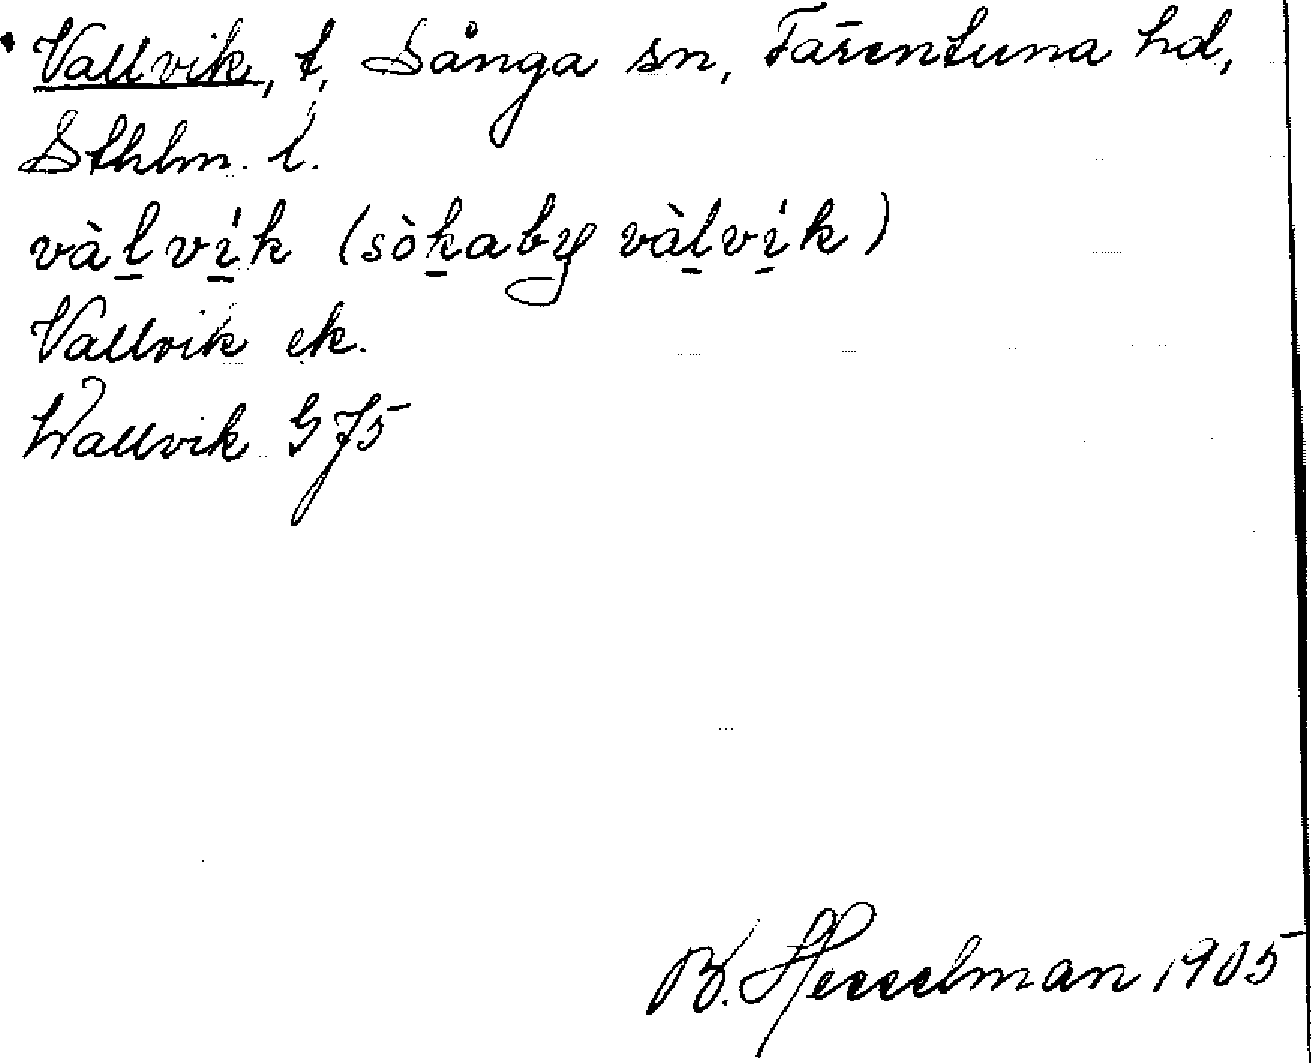 Vallvik, t, Sånga sn, Färentuna hd,
Sthlm. l.
vàl̲ ví̲k (sòk̲aby vàl̲ví̲k)
Vallvik ek.
Wallvik GJ5
B. Hesselman 1905